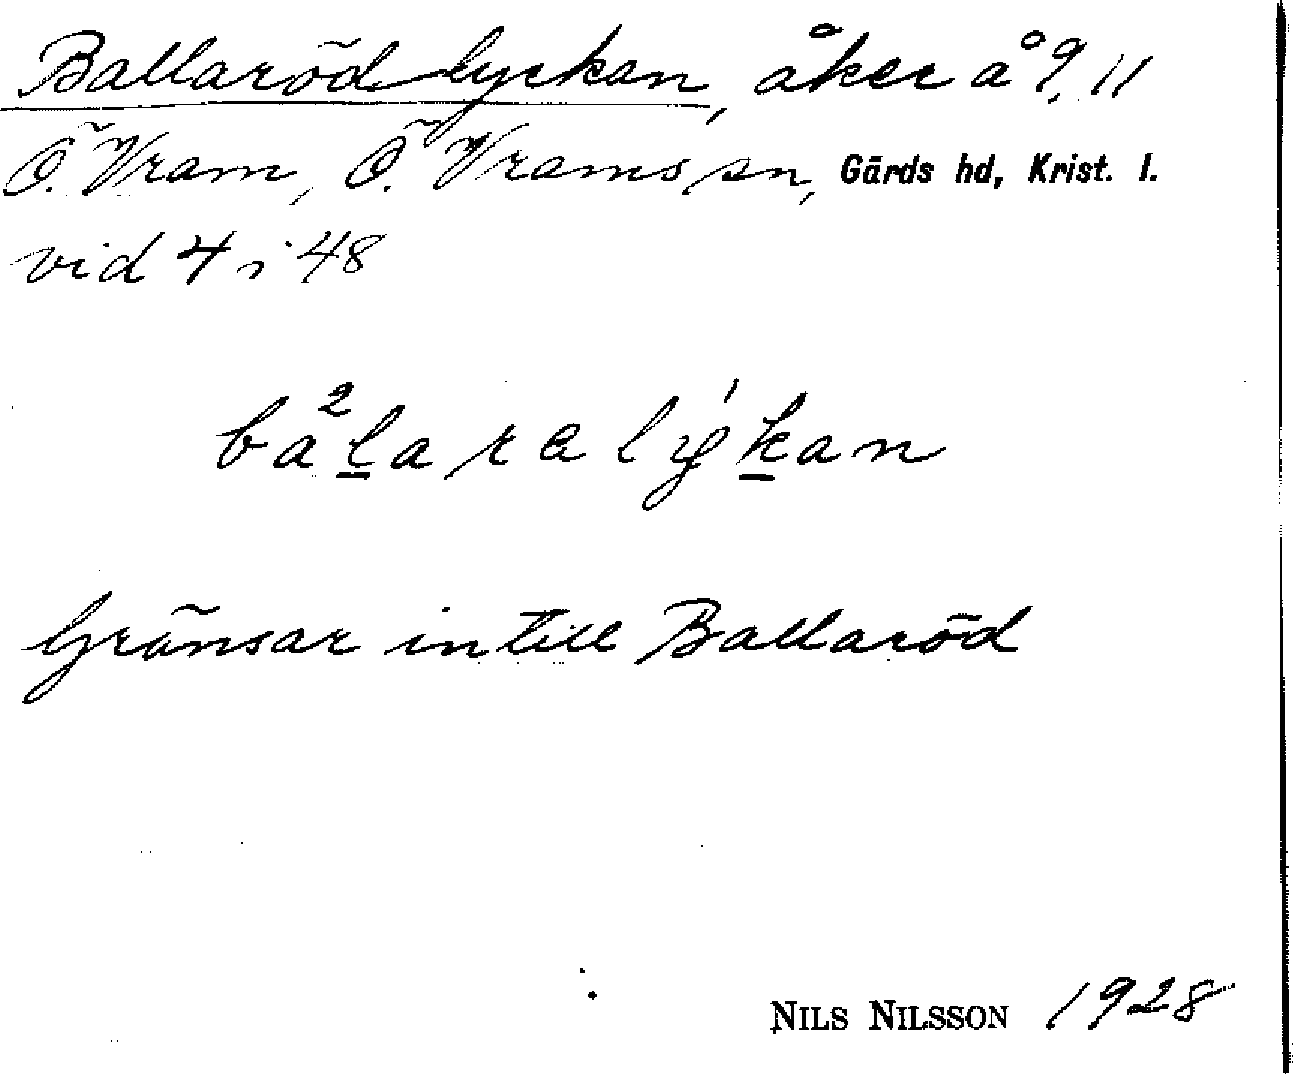 Ballarödlyckan, åker å 9, 11
Ö. Vram, Ö. Vrams sn, Gärds hd, Krist. l.
vid 4 i 48
ba²l̲aralýk̲an
Gränsar intill Ballaröd
NILS NILSSON 1928